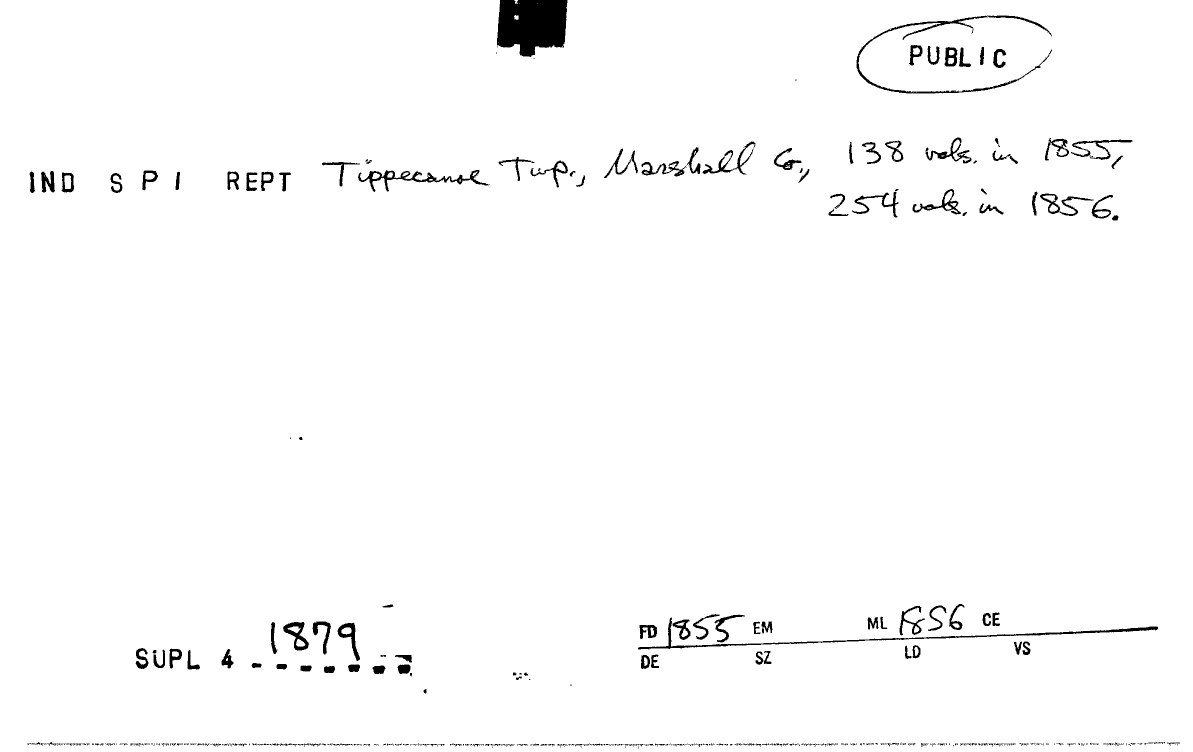 PUBLIC
IND S P I REPT Tippecanoe Twp., Marshall Co., 138 vols. in 1855,
254 vols. in 1856.
SUPL 4 1879
FD 1855 EM ML 1856 CE
DE SZ LD VS